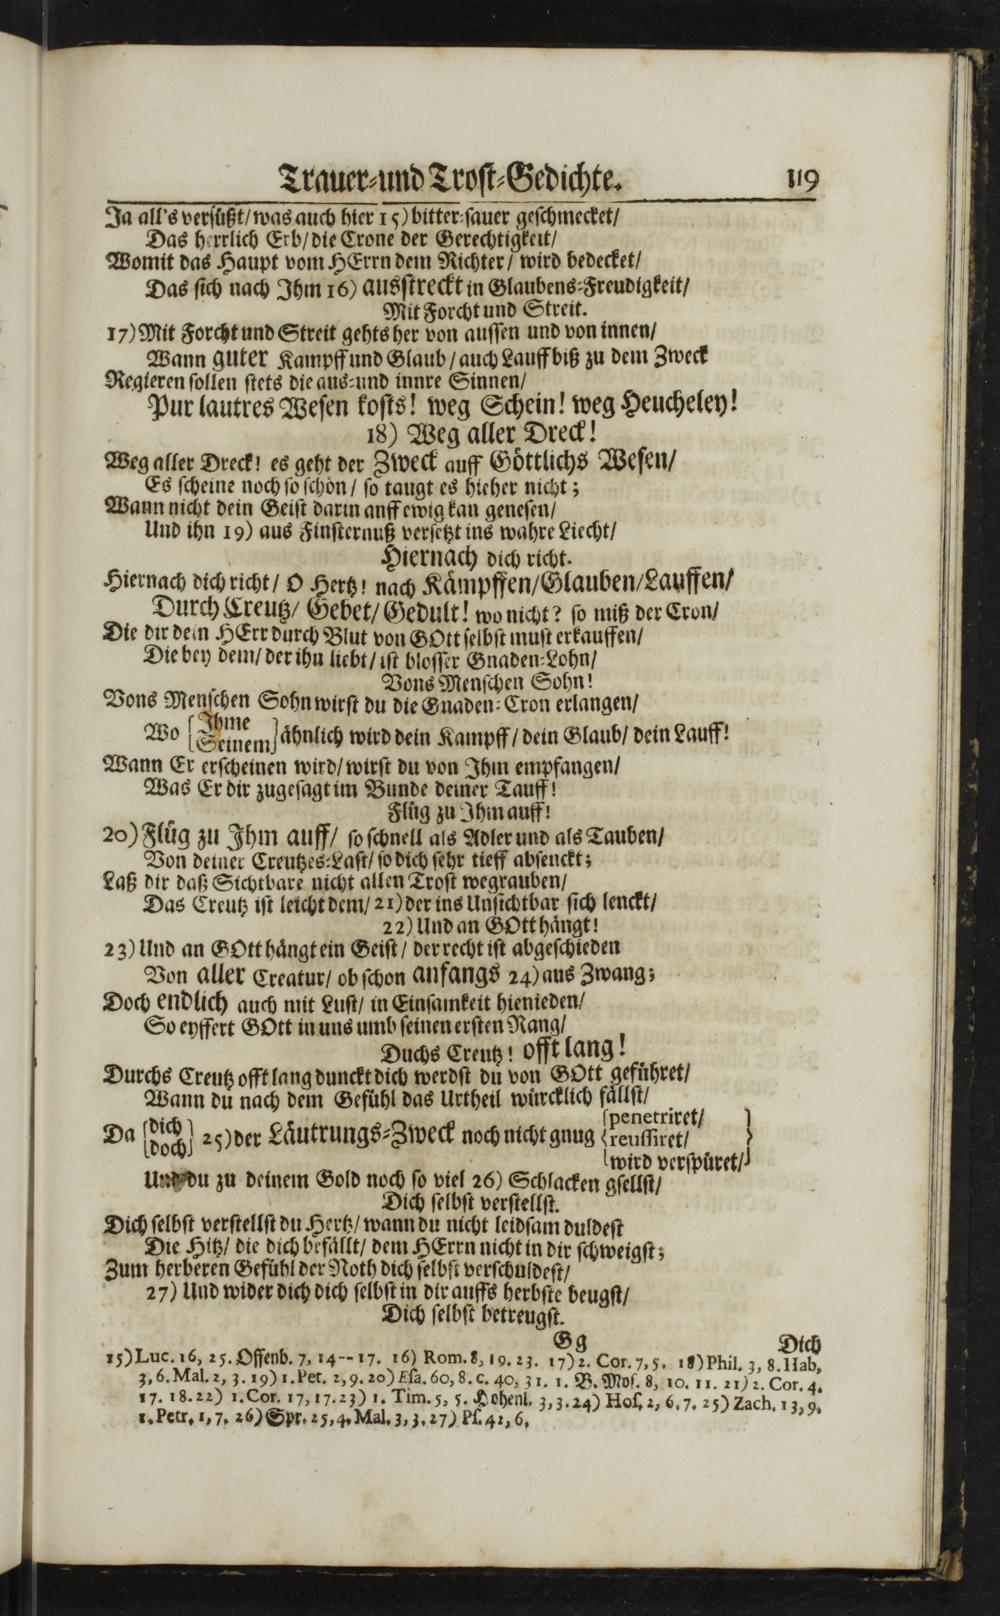 Trauer-und Trost-Gedichte. 119
Ja all's versüßt/was auch hier 15) bitter-sauer geschmecket/
Das herrlich Erb/die Crone der Gerechtigkeit/
Womit das Haupt vom HErrn dem Richter/ wird bedecket/
Das sich nach Ihm 16) ausstreckt in Glaubens-Freudigkeit/
Mit Forcht und Streit.
17) Mit Forcht und Streit gehts her von aussen und von innen/
Wann guter Kampff und Glaub/auch Lauff biß zu dem Zweck
Regieren sollen stets die aus-und innre Sinnen/
Pur lautres Wesen kosts! weg Schein! weg Heucheley!
18) Weg aller Dreck!
Weg aller Dreck! es geht der Zweck auff Göttlichs Wesen/
Es scheine noch so schön/ so taugt es hieher nicht;
Wann nicht dein Geist darin auff ewig kan genesen/
Und ihn 19) aus Finsternuß versetzt ins wahre Liecht/
Hiernach dich richt.
Hiernach dich richt/ O Hertz! nach Kämpffen/Glauben/Lauffen/
Durch Creutz/ Gebet/ Gedult! wo nicht? so miß der Cron/
Die dir dein HErr durch Blut von GOtt selbst must erkauffen/
Die bey dem/der ihn liebt/ist blosser Gnaden-Lohn/
Vons Menschen Sohn!
Vons Menschen Sohn wirst du die Gnaden-Cron erlangen/
Wo [Ihme
Seinem] ähnlich wird dein Kampff/dein Glaub/ dein Lauff!
Wann Er erscheinen wird/wirst du von Ihm empfangen/
Was Er dir zugesagt im Bunde deiner Tauff!
Flüg zu Ihm auff!
20) Flüg zu Ihm auff/ so schnell als Adler und als Tauben/
Von deiner Creutzes-Last/so dich sehr tieff absenckt;
Laß dir daß Sichtbare nicht allen Trost wegrauben/
Das Creutz ist leicht dem/21) der ins Unsichtbar sich lenckt/
22) Und an GOtt hängt!
23) Und an GOtt hängt ein Geist/ der recht ist abgeschieden
Von aller Creatur/ ob schon anfangs 24) aus Zwang;
Doch endlich auch mit Lust/ in Einsamkeit hienieden/
So eyffert GOtt in uns umb seinen ersten Rang/
Duchs Creutz! offt lang!
Durchs Creutz offt lang dunckt dich werdst du von GOtt geführet/
Wann du nach dem Gefühl das Urtheil würcklich fällst/
Da [dich
doch] 25) der Läutrungs-Zweck noch nicht gnug {penetriret/
reussiret/
wird verspüret/}
Und du zu deinem Gold noch so viel 26) Schlacken gsellst/
Dich selbst verstellst.
Dich selbst verstellst du Hertz/wann du nicht leidsam duldest
Die Hitz/ die dich befällt/ dem HErrn nicht in dir schweigst;
Zum herberen Gefühl der Noth dich selbst verschuldest/
27) Und wider dich dich selbst in dir auffs herbste beugst/
Dich selbst betreugst.
Gg Dich
15) Luc. 16, 25. Offenb. 7, 14--17. 16) Rom. 8, 19. 23. 17) 2. Cor. 7, 5. 18) Phil. 3, 8. Hab,
3, 6. Mal. 2, 3. 19) 1. Pet. 2, 9. 20) Esa. 60, 8. c. 40, 31. 1. B. Mos. 8, 10. 11. 21) 2. Cor. 4.
17. 18. 22) 1. Cor. 17, 17. 23) 1. Tim. 5, 5. Hohenl. 3, 3. 24) Hos. 2, 6, 7. 25) Zach. 13, 9.
1. Petr. 1, 7. 26) Spr. 25, 4. Mal. 3, 3. 27) Ps. 42, 6.